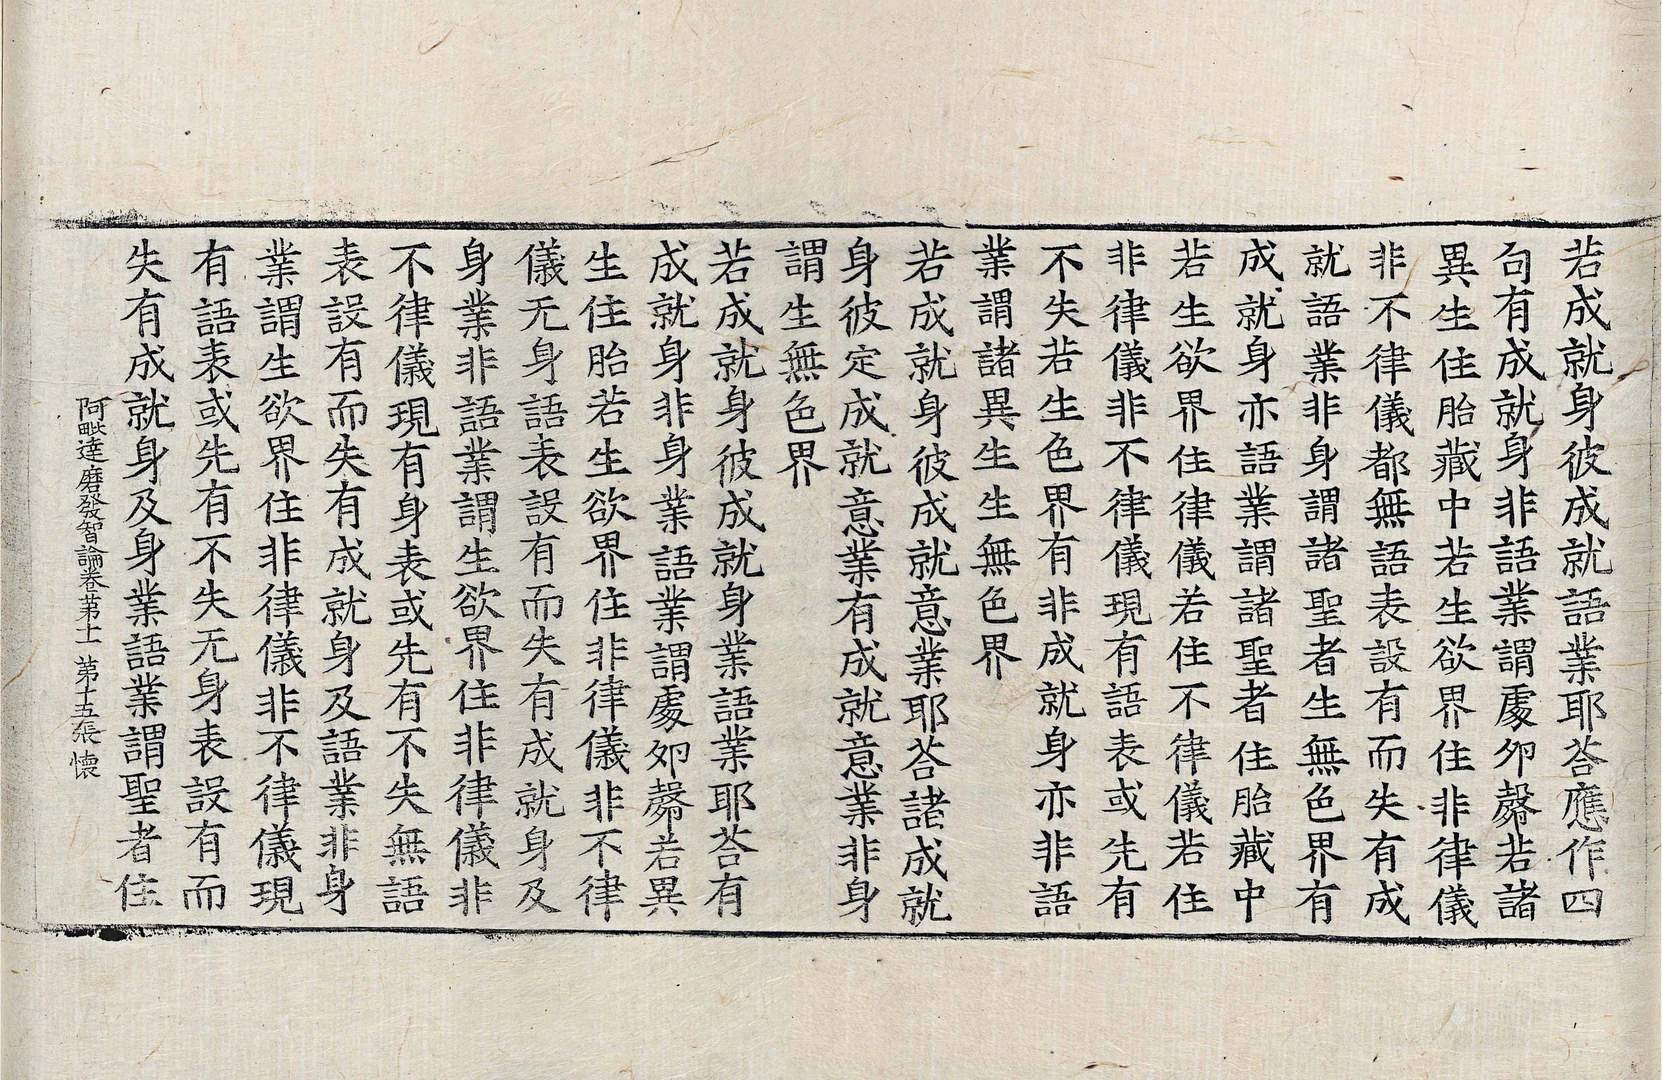 若成就身彼成就語業耶荅應作四
句有成就身非語業謂處夘㲉若諸
異生住胎藏中若生欲界住非律儀
非不律儀都無語表設有而失有成
就語業非身謂諸聖者生無色界有
成就身亦語業謂諸聖者住胎藏中
若生欲界住律儀若住不律儀若住
非律儀非不律儀現有語表或先有
不失若生色界有非成就身亦非語
業謂諸異生生無色界
若成就身彼成就意業耶荅諸成就
身彼定成就意業有成就意業非身
謂生無色界
若成就身彼成就身業語業耶荅有
成就身非身業語業謂處夘㲉若異
生住胎若生欲界住非律儀非不律
儀无身語表設有而失有成就身及
身業非語業謂生欲界住非律儀非
不律儀現有身表或先有不失無語
表設有而失有成就身及語業非身
業謂生欲界住非律儀非不律儀現
有語表或先有不失无身表設有而
失有成就身及身業語業謂聖者住
阿毗達磨發智論卷第十一 第十五張 懷